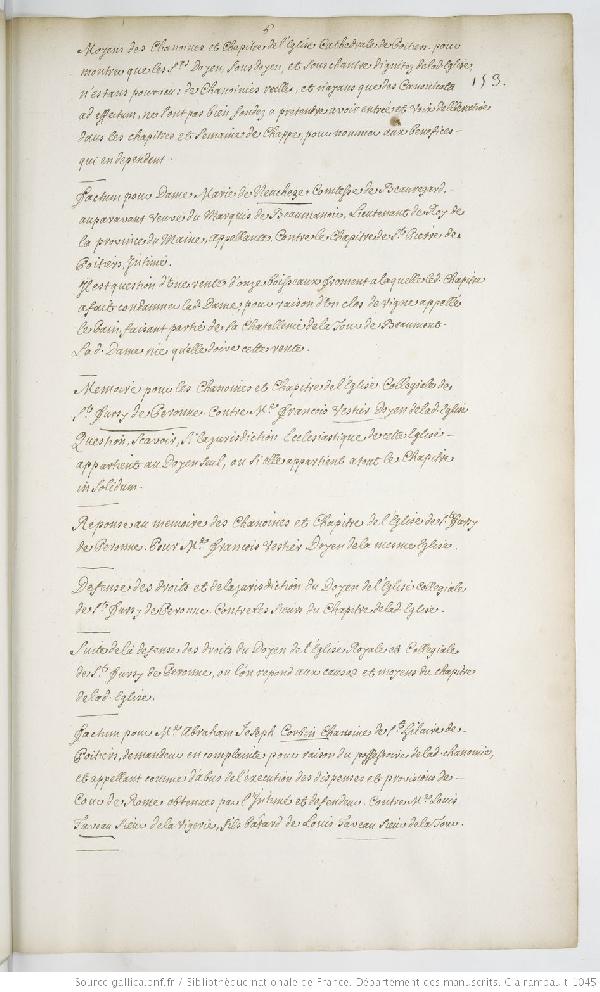 6
153.
Moyens des Chanoines et Chapitre de l'Eglise Cathedrale de Poitiers pour
montrer que les Srs Doyen, sousdoyen, et souschantre dignitez de lad. Eglise
n'estans pourveus de Chanoinies reelle, et n'ayans que des Canonicats
ad effectum, ne sont pas bien fondez a pretendre avoir entrée et voix deliberative
dans les chapitres et semaine de Chappe, pour nommer aux benefices
qui en dependent.
Factum pour Dame Marie de Neuchege Comtesse de Beauregard,
auparavant veuve du Marquis de Beaumanoir, Lieutenant de Roy de
la province du Maine, appellante, Contre le Chapitre de St Pierre de
Poitiers, Intimé.
Il est question d'une rente d'onze boisseaux froment a laquelle led. Chapitre
a fait condamner lad. Dame, pour raison d'un clos de vigne appellé
le bain, faisant partie de sa Chatellenie de la Tour de Beaumont.
Lad. Dame nie qu'elle doive cette rente.
Memoire pour les Chanoines et Chapitre de l'Eglise Collegiale de
St Fursy de Peronne Contre Me François Vestier Doyen de lad. Eglise
Question, scavoir, si la jurisdiction Ecclesiastique de cette Eglise
appartient au Doyen seul, ou si elle appartient a tout le Chapitre
in solidum.
Reponse au memoire des Chanoines et Chapitre de l'Eglise de St Fursy
de Peronne. Pour Me François Vestier Doyen de la mesme Eglise.
Defense des droits et de la jurisdiction du Doyen de l'Eglise Collegiale
de St Fursy de Peronne. Contre les Sieurs du Chapitre de lad. Eglise.
Suite de la defense des droits du Doyen de l'Eglise Royale et Collegiale
de St Fursy de Peronne, ou l'on repond aux causes et moyens du chapitre
de lad. Eglise.
Factum pour Me Abraham Joseph Corbin Chanoine de St Hilaire de
Poitiers, demandeur en complainte pour raison du possessoire de lad. chanoinie,
et appellant comme d'abus de l'execution des dispenses et provisions de
Cour de Rome obtenues par l'Intimé et defendeur. Contre Me Louis
Taveau sieur de la Vigerie, fils batard de Louis Taveau sieur de la Tour.
Source gallica.bnf.fr / Bibliothèque nationale de France. Département des manuscrits. Clairambault 1045